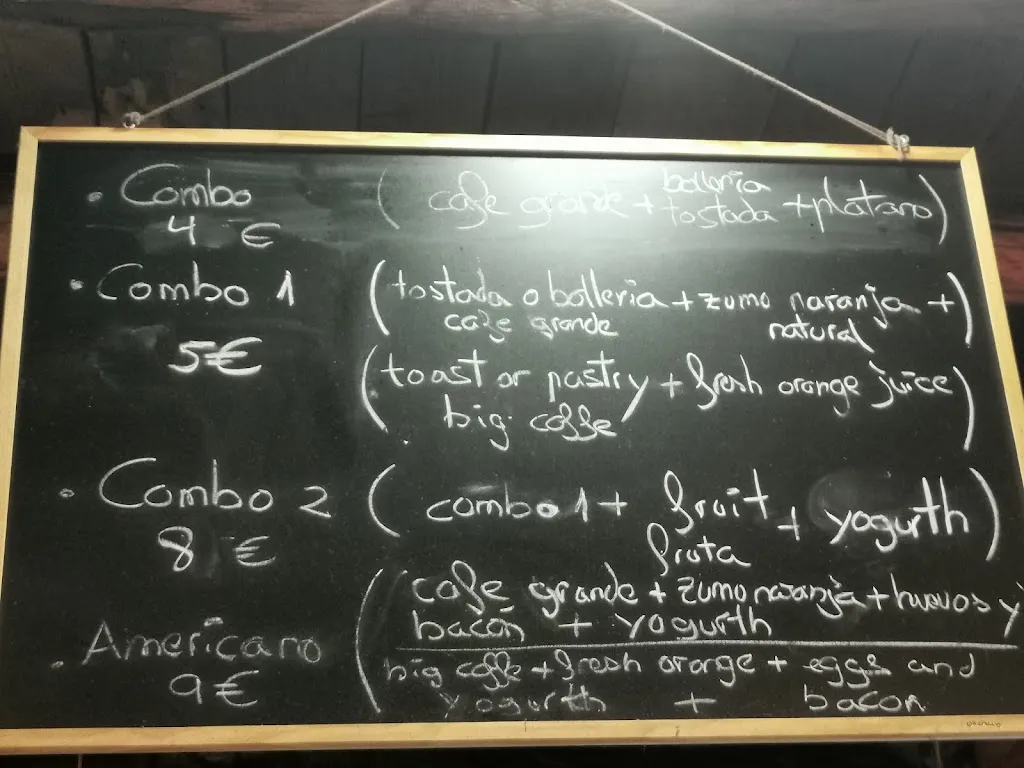 • Combo ( cafe grande + bolleria tostada + platano)
4 €
• Combo 1 (tostada o bolleria + zumo naranja +)
cafe grande natural
5€
(toast or pastry + fresh orange juice)
big coffe
• Combo 2 ( combo 1 + fruit + yogurth)
8 € fruta
(cafe grande + zumo naranja + huevos y
bacón + yogurth
• Americano
9 €
big coffe + fresh orange + eggs and
yogurth + bacon